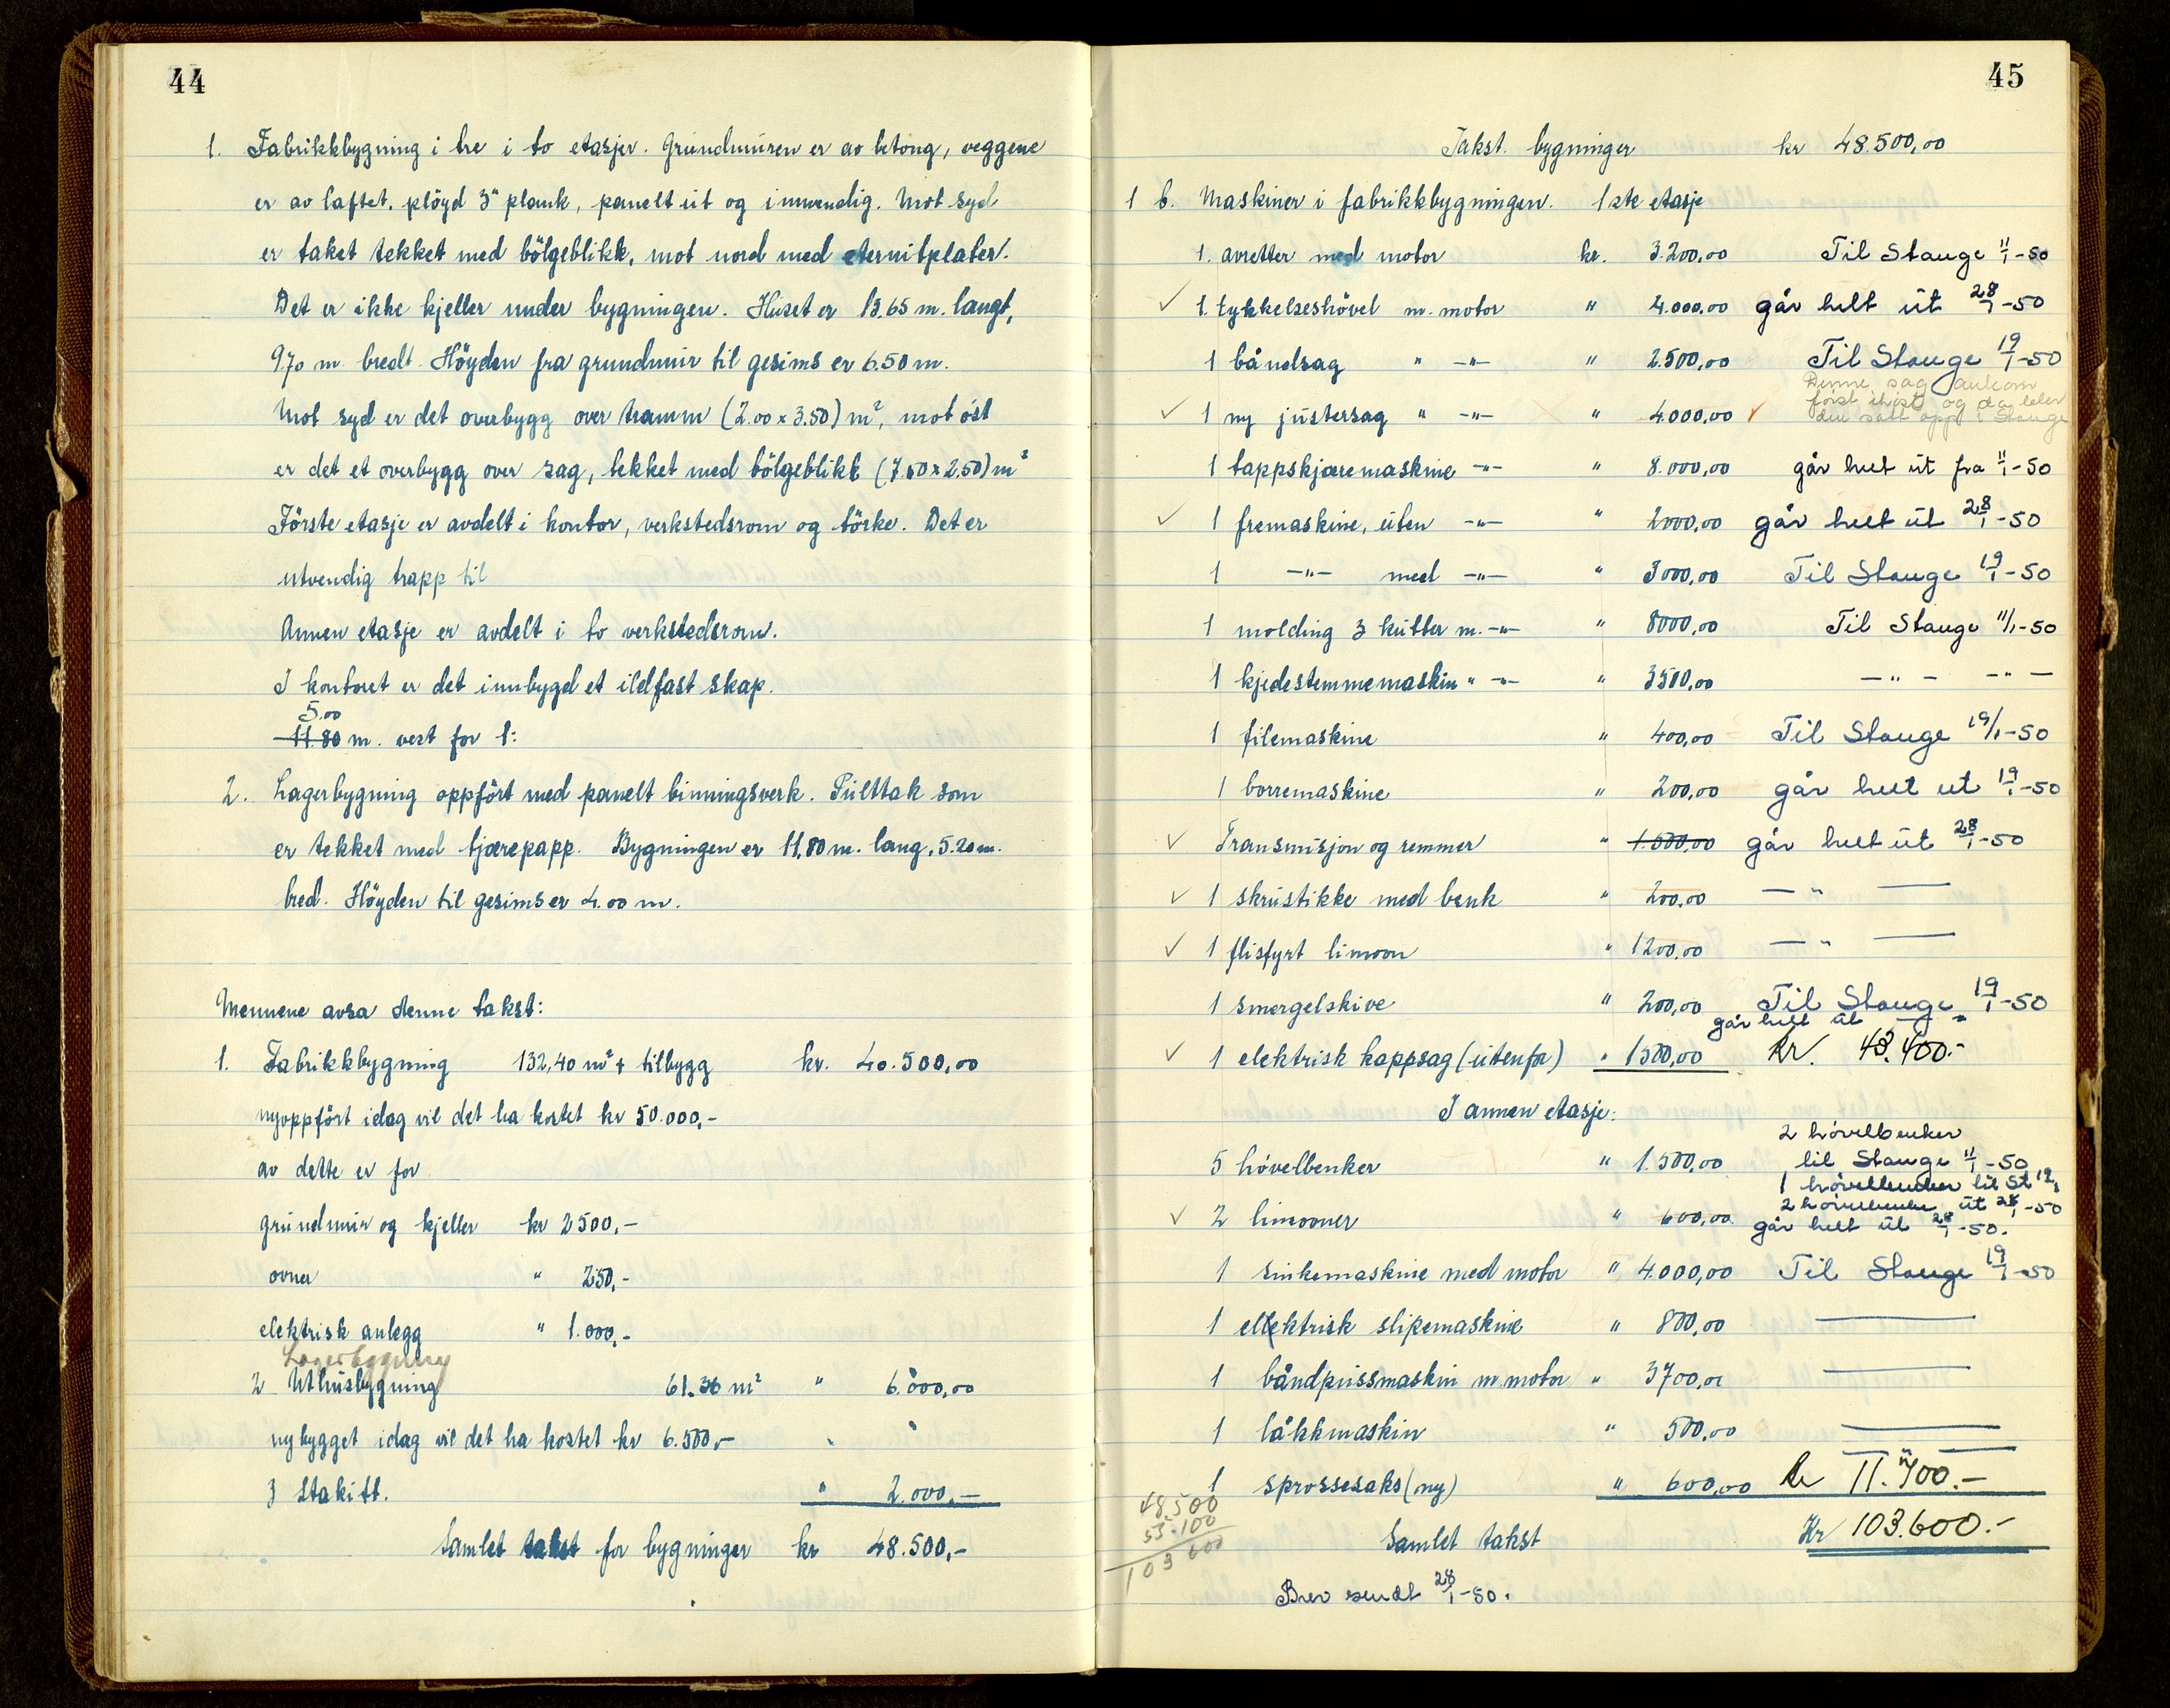 44
1. Fabrikkbygning i tre i to etasjer. Grundmuren er av betong, veggene
er av laftet, pløyd 3" plank, panelt ut og innvendig. Mot syd
er taket tekket med bölgeblikk, mot nord med eternitplater.
Det er ikke kjeller under bygningen. Huset er 13,65 m. langt,
9.70 m bredt. Höyden fra grundmur til gesims er 6.50 m.
Mot syd er det overbygg over tramm (2.00 x 3.50) m², mot öst
er det et overbygg over sag, tekket med bölgeblikk (7.50 x 2.50) m²
Förste etasje er avdelt i kontor, verkstedsrom og törke. Det er
utvendig trapp til
Annen etasje er avdelt i to verkstedsrom.
I kontoret er det innbygd et ildfast skap.
5.00
11.80 m. vest for 1:
2. Lagerbygning oppfört med panelt binningsverk. Pulttak som
er tekket med tjærepapp. Bygningen er 11,80 m. lang, 5.20 m.
bred. Höyden til gesims er 4.00 m.
Mennene avsa denne takst:
1. Fabrikkbygning 132,40 m² + tilbygg kr. 40.500,00
nyoppfört idag vil det ha kostet kr 50.000,-
av dette er for
grundmur og kjeller kr 2500,-
ovner " 250,-
elektrisk anlegg " 1.000,-
Lagerbygning
2 Uthusbygning 61.36 m² " 6.000,00
nybygget idag vil det ha kostet kr 6.500,-
3 Stakitt. " 2.000,-
Samlet takst for bygninger kr 48.500,-
45
Takst bygninger kr 48.500,00
1 b. Maskiner i fabrikkbygningen. 1ste etasje
1. avretter med motor kr. 3.200,00 Til Stange 11/1-50
✓ 1. tykkelseshövel m. motor " 4.000,00 går helt ut 28/1-50
1 båndsag " -"- " 2.500,00 Til Stange 19/1-50
Denne sag ankom
✓ 1 ny justersag " -"- " 4.000,00 ✓ först og da blev
den satt opp i Stange
1 tappskjæremaskine -"- " 8.000,00 går helt ut fra 11/1-50
✓ 1 fremaskine, uten -"- " 2000,00 går helt ut 28/1-50
1 -"- med -"- " 3000,00 Til Stange 19/1-50
1 molding 3 kutter m. -"- " 8000,00 Til Stange 11/1-50
1 kjedestemmemaskin " -"- " 3500,00 -"- -"-
1 filemaskine " 400,00 Til Stange 19/1-50
1 borremaskine " 200,00 går helt ut 19/1-50
✓ Transmisjon og remmer " 1.500,00 går helt ut 28/1-50
✓ 1 skrustikke med benk " 200,00 — " —
✓ 1 flisfyrt limovn " 1200,00 — " —
1 smergelskive " 200,00 Til Stange 19/1-50
går helt ut
✓ 1 elektrisk kappsag (utenfor) " 1500,00 kr. 43.400.-
I annen etasje:
2 hövelbenker
5 hövelbenker " 1.500,00 til Stange 11/1-50
1 hövelbenker til St 19/1
2 hövelbenke ut 28/1-50
✓ 2 limovner " 600,00 går helt ut 28/1-50.
1 sinkemaskine med motor " 4.000,00 Til Stange 19/1-50
1 elektrisk slipemaskine " 800,00 —
1 båndpussmaskin m motor " 3700,00 —
1 låkkmaskin " 500,00 —
1 sprossesaks (ny) " 600,00 kr 11.700.-
48.500
55.100
103 600
Samlet takst Kr 103.600.-
Brev sendt 28/1-50.